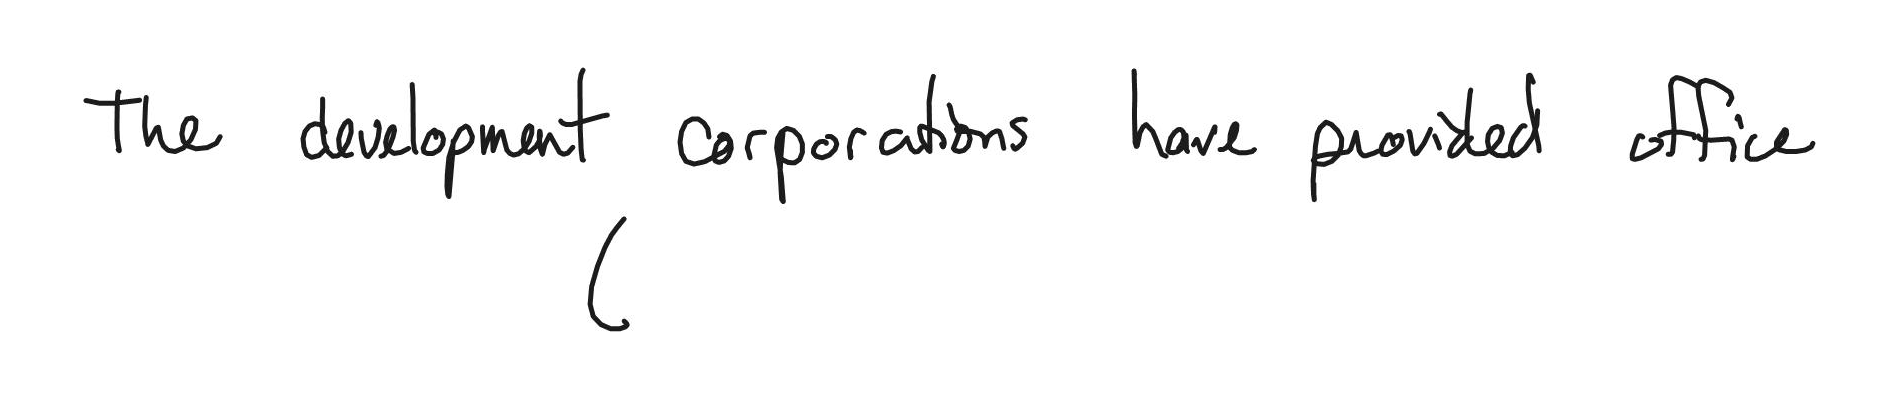 The development corporations have provided office
(